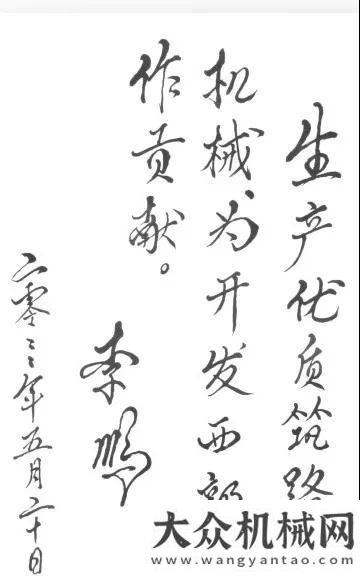 生产优质筑路
机械,为开发西部
作贡献。
李鹏
二零〻二年五月二十日
大众机械网
www.wangyantao.com